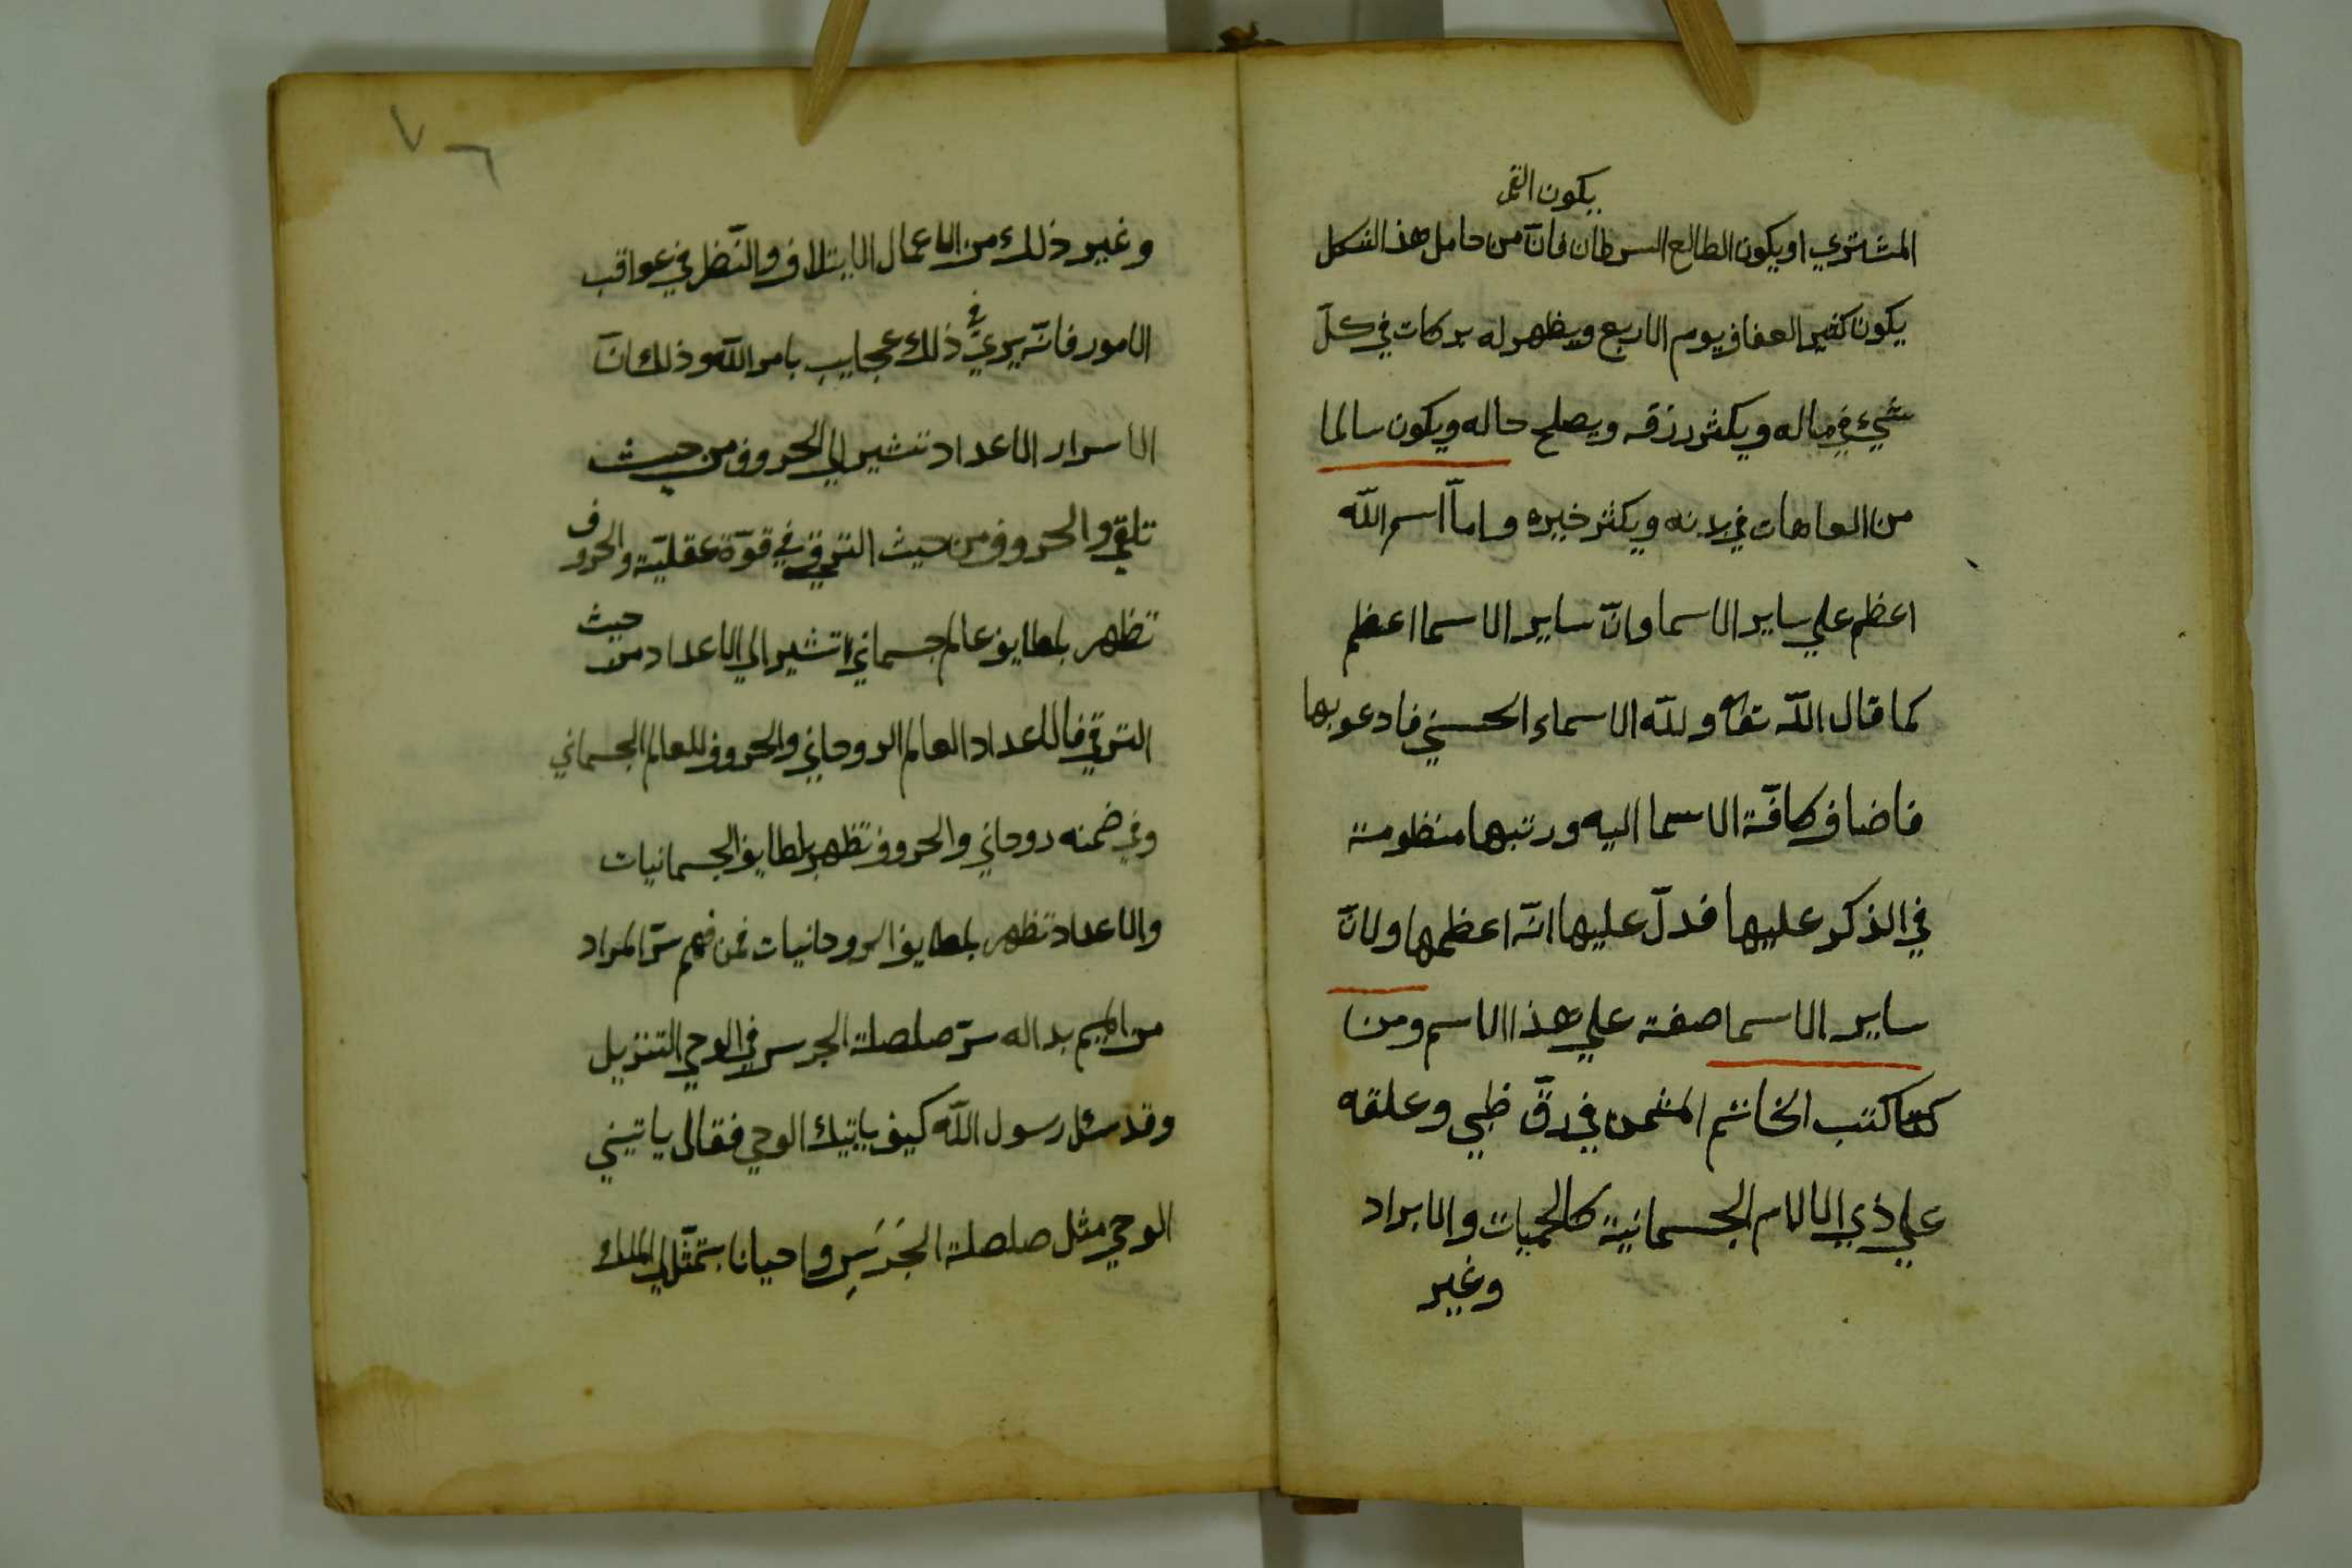 يكون القمر
المشتري او يكون الطالع السرطان فانّ من حامل هذ الشكل
يكون كثير العفاف يوم الاربع ويظهر له بركات في كلّ
شيء في ماله ويكثر رزقه ويصلح حاله ويكون سالما
من العاهات في بدنه ويكثر خيره وامّا اسم اللّه
اعظم علي ساير الاسما وانّ ساير الاسما اعظم
كما قال اللّه تعا وللّه الاسماء الحسني فادعو بها
فاضاف كافّة الاسما اليه ورتبها منظومة
في الذكر عليها فدلّ عليها انّه اعظمها ولانّ
ساير الاسما صفة علي هذا الاسم ومن
كتب الخاتم المثمن في رقّ ظبي وعلقه
علي ذي الالام الجسمانية كالحميات والابراد
وغير
٧٦
وغير ذلك من الاعمال الايتلاف والنّظر في عواقب
الامور فانّه يري في ذلك عجايب بامر اللّه وذلك انّ
الاسرار الاعداد تشير الي الحروف من حيث
تلقي والحروف من حيث الترقي في قوّة عقليّة والحروف
تظهر بلطايف عالم جسماني تشير الي الاعداد من حيث
الترقي فالاعداد العالم الروحاني والحروف للعالم الجسماني
وفي ضمنه روحاني والحروف تظهر بلطايف الجسمانيات
والاعداد تظهر بلطايف الروحانيات فمن فهم سرّ المراد
من الميم بدا له سرّ صلصلة الجرس في الوحي التنزيل
وقد سئل رسول اللّه كيف ياتيك الوحي فقال ياتيني
الوحي مثل صلصلة الجَرَسِ واحيانا يتمثّل لي الملك